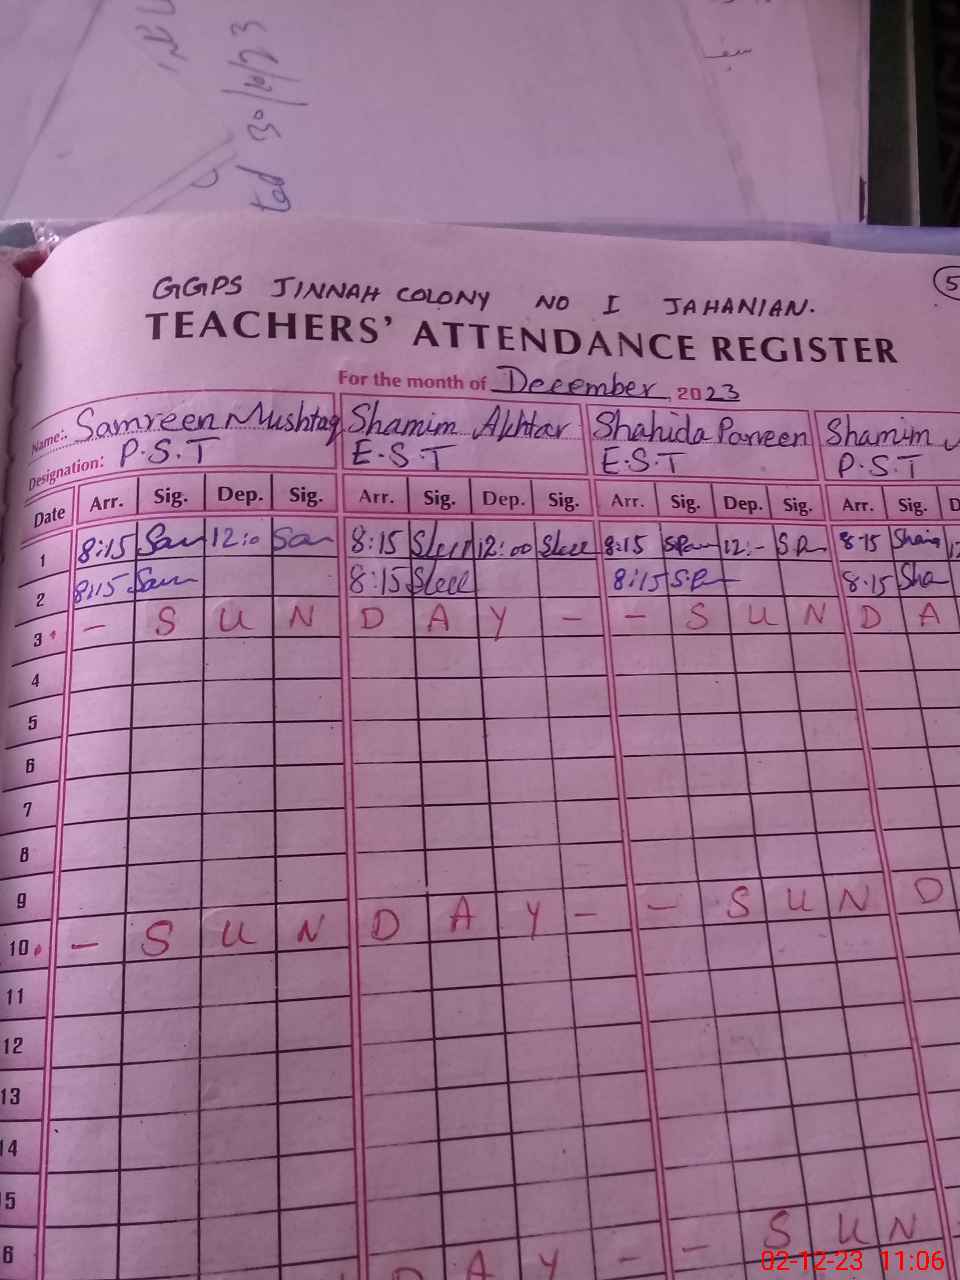 30/10/23
GGPS JINNAH COLONY NO I JAHANIAN.
5
TEACHERS' ATTENDANCE REGISTER
For the month of December, 2023
Name: Samreen Mushtaq Shamim Akhtar Shahida Parveen Shamim
Designation: P.S.T E.S.T E.S.T P.S.T
Date Arr. Sig. Dep. Sig. Arr. Sig. Dep. Sig. Arr. Sig. Dep. Sig. Arr. Sig. D
1 8:15 Sam 12:0 Sam 8:15 12:00 8:15 12:- 8:15
2 8:15 Sam 8:15 8:15 8:15 Sha
3 - S U N D A Y - - S U N D A
4
5
6
7
8
9
10 - S U N D A Y - - S U N D
11
12
13
14
5
6 D A Y - - S U N
02-12-23 11:06